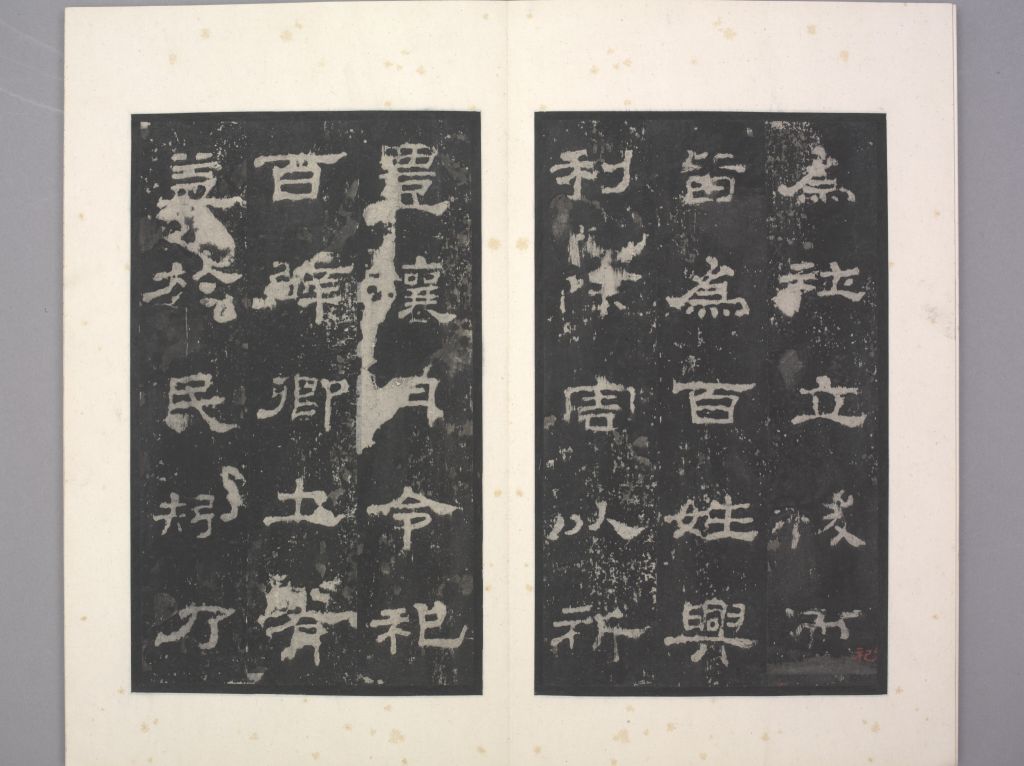 為社立稷而祀
皆為百姓興
利除害以祈
豊穰月令祀
百辟卿士有
益於民矧乃